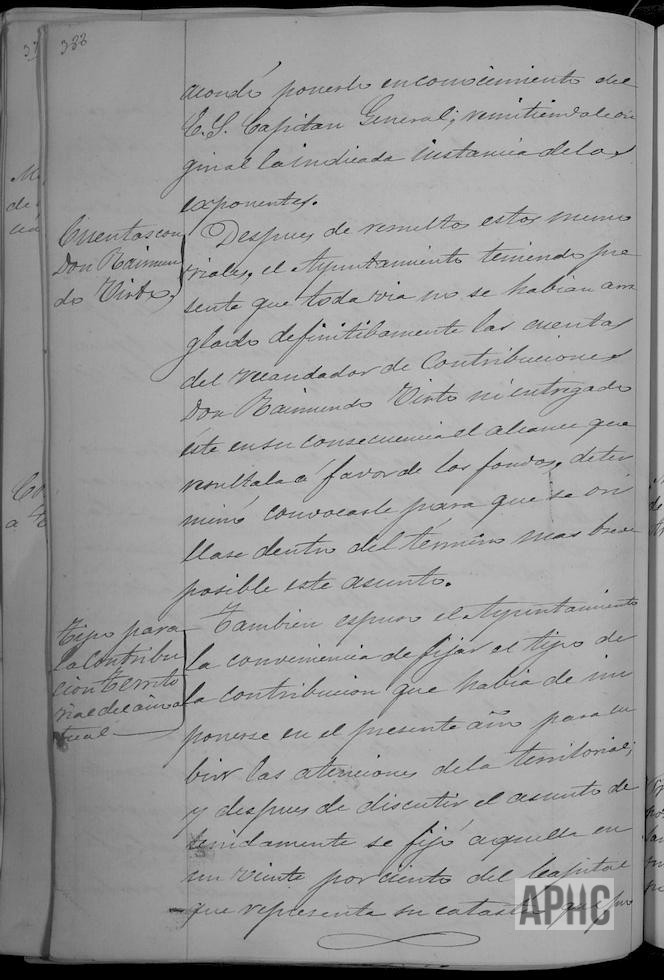 388
acordó ponerlo en conocimiento del
E. S. Capitan General; remitiendole ori
ginal la indicada instancia de los
exponentes.
Cuentas con
Don Raimun
do Virto,
Despues de resueltos estos memo
riales, el Ayuntamiento teniendo pre
sente que todavia no se habian arre
glado definitibamente las cuentas
del recaudador de Contribuciones
Don Raimundo Virto ni entregado
este en su consecuencia el alcance que
resultaba á favor de los fondos, deter
minó convocarle para que se ori
llase dentro del término mas breve
posible este asunto.
Tipo para
la Contribu
cion territo
rial del año ac
tual
Tambien espuso el Ayuntamiento
la conveniencia de fijar el tipo de
la contribucion que habia de im
ponerse en el presente año para cu
brir las atenciones de la territorial;
y despues de discutir el asunto de
tenidamente se fijó aquella en
un veinte por ciento del Capital
que representa su catastro
APHC